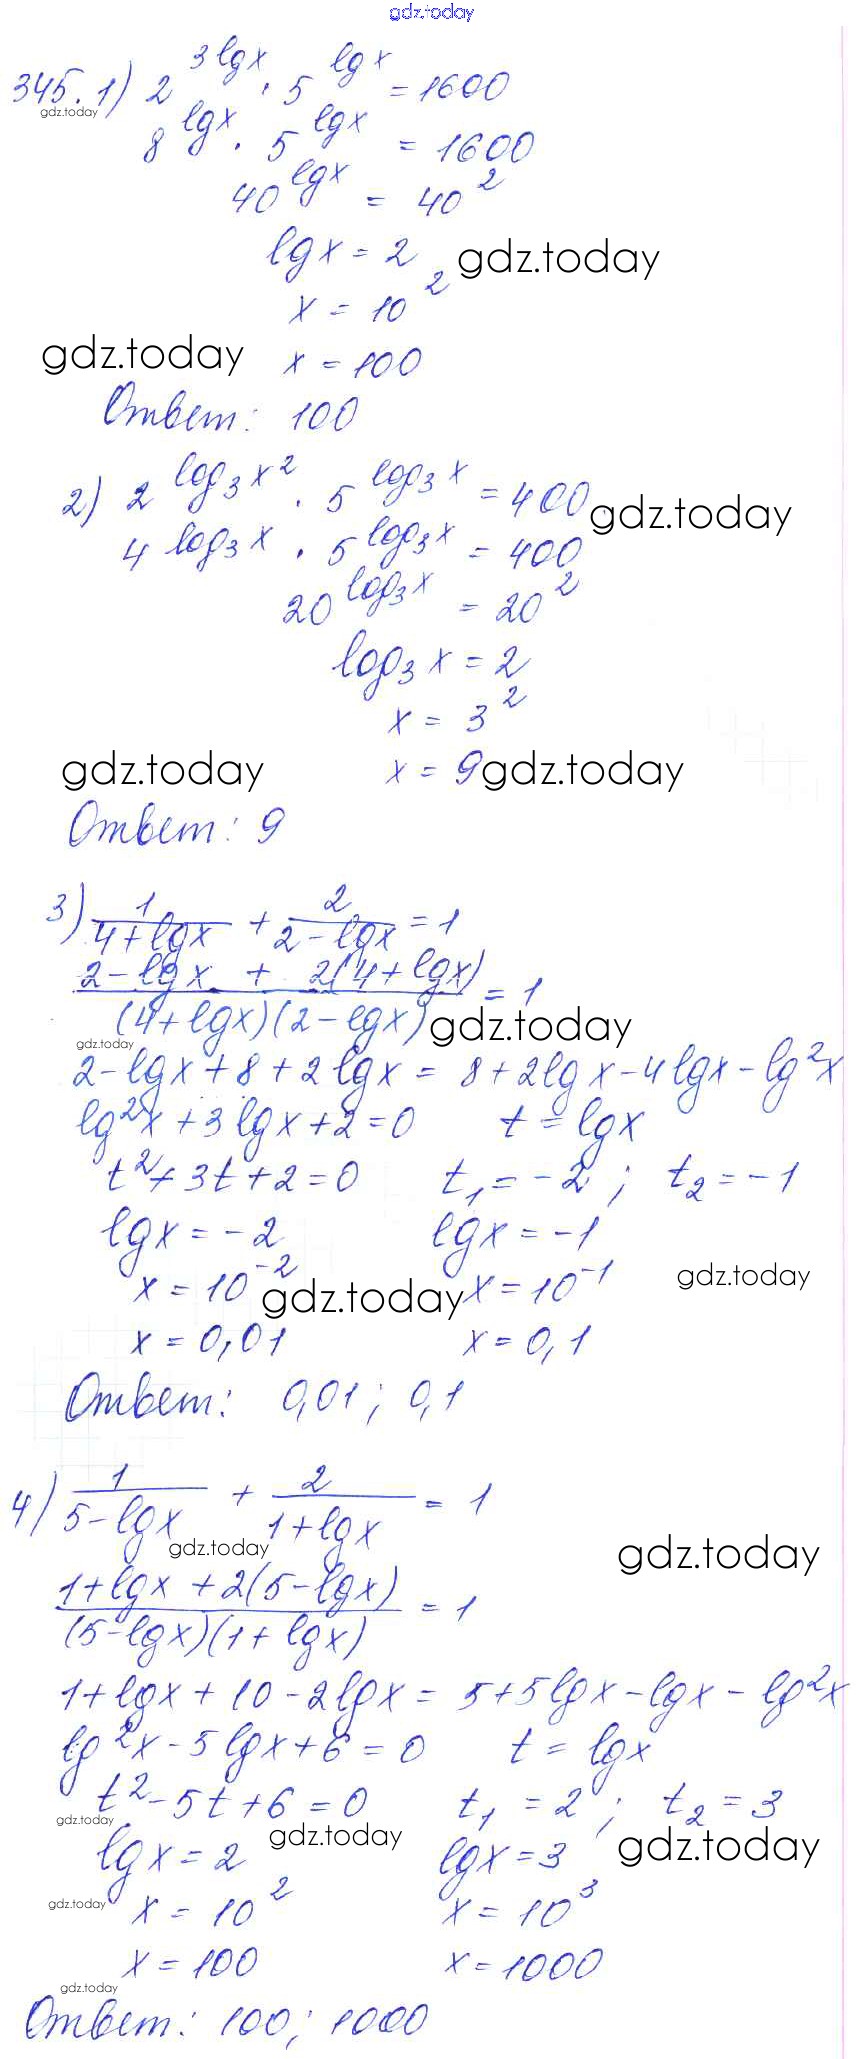 gdz.today
345. 1) 2^{3lgx} · 5^{lgx} = 1600
gdz.today
8^{lgx} · 5^{lgx} = 1600
40^{lgx} = 40^2
lgx = 2 gdz.today
x = 10^2
gdz.today x = 100
Ответ: 100
2) 2^{log_3 x^2} · 5^{log_3 x} = 400 gdz.today
4^{log_3 x} · 5^{log_3 x} = 400
20^{log_3 x} = 20^2
log_3 x = 2
x = 3^2
gdz.today x = 9 gdz.today
Ответ: 9
3) 1/(4+lgx) + 2/(2-lgx) = 1
(2-lgx + 2(4+lgx))/((4+lgx)(2-lgx)) = 1
gdz.today gdz.today
2-lgx+8+2lgx = 8+2lgx-4lgx-lg^2x
lg^2x+3lgx+2=0 t=lgx
t^2+3t+2=0 t_1=-2; t_2=-1
lgx=-2 lgx=-1
x=10^{-2} gdz.today x=10^{-1} gdz.today
x=0,01 x=0,1
Ответ: 0,01; 0,1
4) 1/(5-lgx) + 2/(1+lgx) = 1
gdz.today gdz.today
(1+lgx+2(5-lgx))/((5-lgx)(1+lgx)) = 1
1+lgx+10-2lgx = 5+5lgx-lgx-lg^2x
lg^2x-5lgx+6=0 t=lgx
t^2-5t+6=0 t_1=2; t_2=3
gdz.today gdz.today gdz.today
lgx=2 lgx=3
gdz.today x=10^2 x=10^3
x=100 x=1000
gdz.today
Ответ: 100; 1000